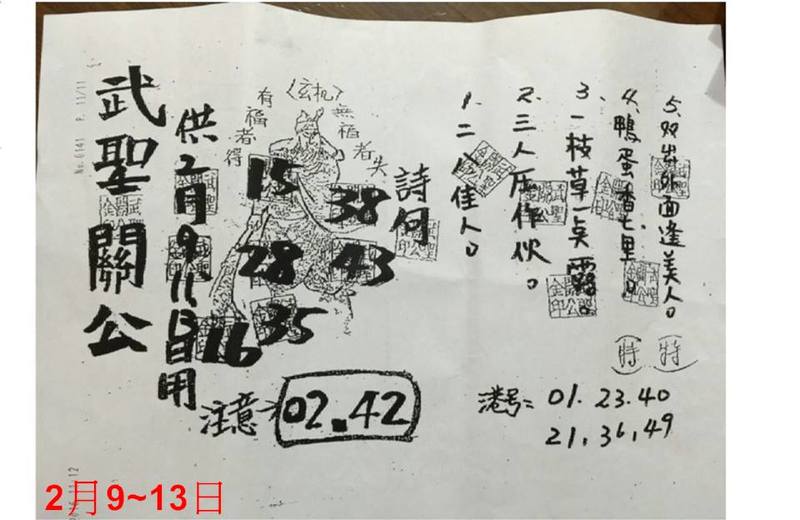 No.6141 P. 11/11
武聖關公
供2月9.11.13日用
有福者得
〈玄机〉
無福者失
15
38
28
43
16
35
注意→
02.42
詩句
1、二八佳人。
2、三人仄作伙。
3、一枝草一点露。
4、鴨蛋香七里。(特)
5、双出外面逢美人。(特)
港号=01.23.40
21.36.49
2月9~13日